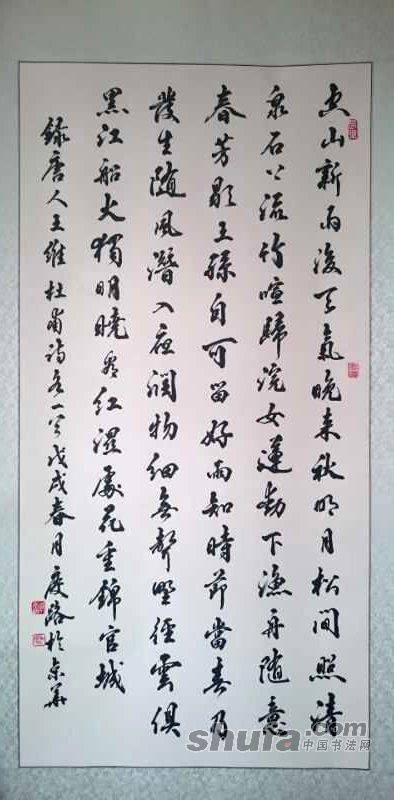 空山新雨後天氣晚来秋明月松間照清
泉石上流竹喧歸浣女蓮動下漁舟随意
春芳歇王孫自可留好雨知時節當春乃
發生随風潛入夜潤物細無聲野徑雲俱
黑江船火獨明曉看紅濕處花重錦官城
録唐人王維杜甫詩各一首戊戌春月路於京華
shufa.com
中国书法网